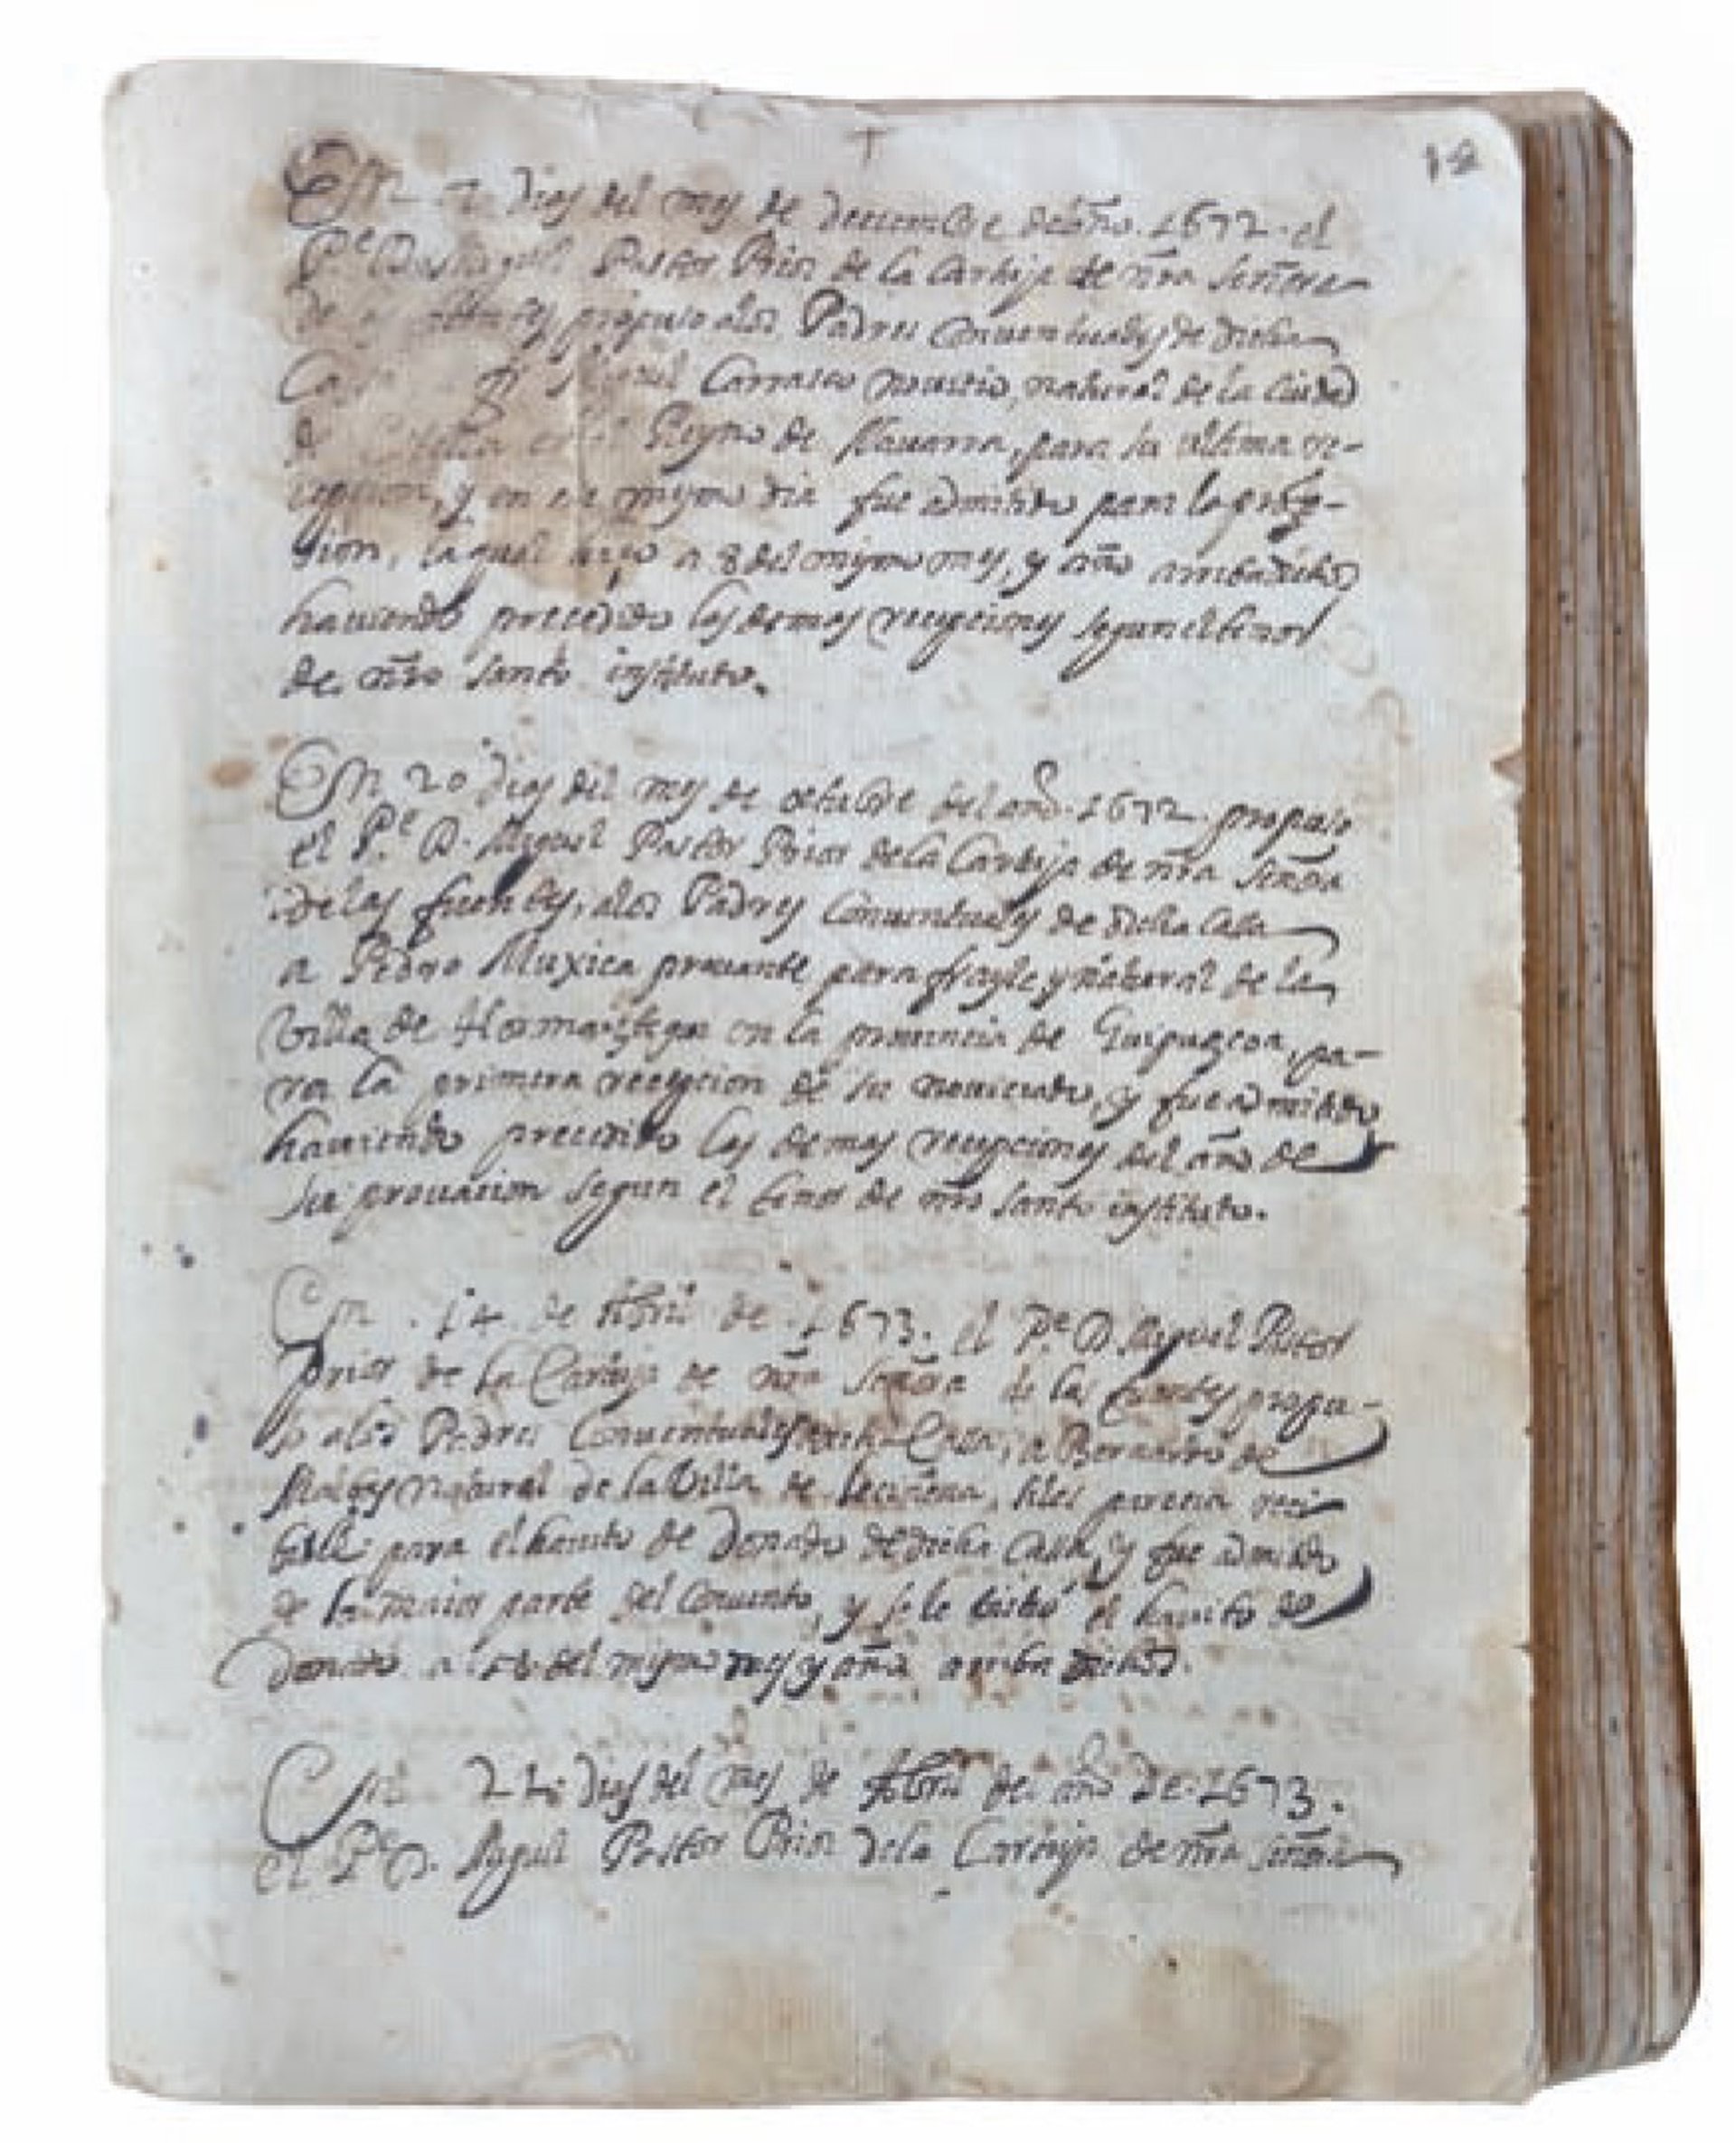 †
12
En 2 dias del mes de deciembre del año. 1672. el
P.e Don Miguel Pastor Prior de la Cartuja de nr̃a señora
de las fuentes propuso alos Padres Conuentuales de dicha
Casa a Miguel Carrasco nouicio, natural de la Ciudad
de en el Reyno de Nauarra, para la vltima re-
cepcion, y en el mysmo dia fue admitido para la profes-
sion, la qual hizo a 8 del mysmo mes, y año arriba dichos
hauiendo precedido las demas recepciones segun el tenor
de nr̃o santo instituto.
En 20 dias del mes de octubre del año. 1672. propuso
el P.e D. Miguel Pastor Prior dela Cartuja de nr̃a Señora
delas fuentes, alos Padres Conuentuales de dicha Casa
a Pedro Muxica prouante para frayle y natural de la
Villa de Hormaiztegui en la prouincia de Guipuzcoa, pa-
ra la primera recepcion de su nouiciado, y fue admitido
hauiendo precedido las demas recepciones del año de
su prouacion segun el tenor de nr̃o santo instituto.
En . 14 . de Abril de . 1673. el P.e D. Miguel Pastor
Prior de la Cartuja de nr̃a Señora de las fuentes propu-
so alos Padres Conuentuales Casa, a Bernardo de
natural de la Villa de Leciñena, si les parecia reci-
bille para el hauito de Donado de dicha Casa, y fue admitido
de la maior parte del Conuento, y se le el hauito de
donado a los del mysmo mes y año arriba dichos.
En 24 dias del mes de Abril del año de . 1673.
el P.e D. Miguel Pastor Prior dela Cartuja de nr̃a Señora